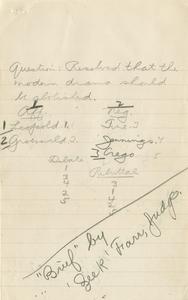 Question: Resolved that the
modern drama should
be abolished.
1 2
Aff. Neg.
1 Leopold 1.
2 Griswold 2. Jennings. 4
Gregg 5
Debate Rebuttal
1 3
3 1
4 4
2 2
5 5
"Brief" by
"Zeek" Farr, Judge.